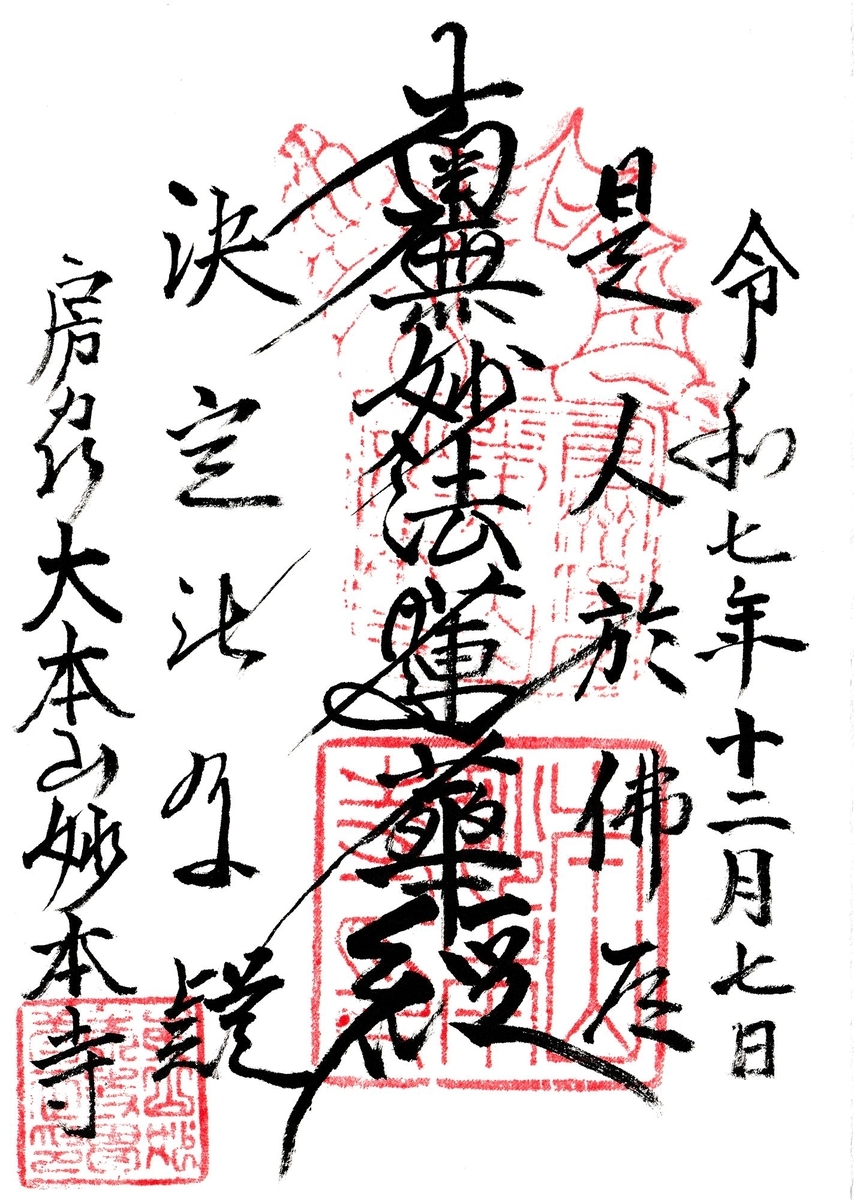 令和七年十二月七日
是人於佛道
南無妙法蓮華経
決定無有疑
房州大本山妙本寺